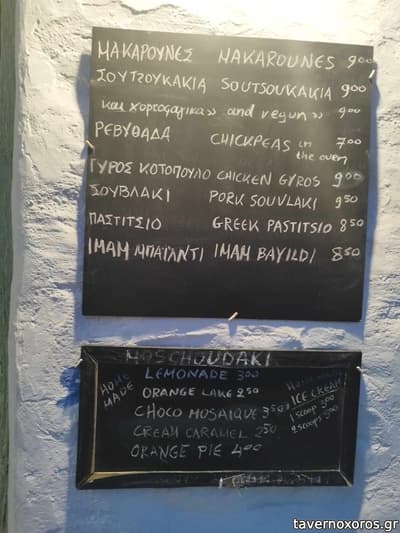 ΜΑΚΑΡΟΥΝΕΣ MAKAROUNES 900
ΣΟΥΤΖΟΥΚΑΚΙΑ SOUTSOUKAKIA 900
και χορτοφαγικα» and vegun» 900
ΡΕΒΥΘΑΔΑ CHICKPEAS in the oven 700
ΓΥΡΟΣ ΚΟΤΟΠΟΥΛΟ CHICKEN GYROS 900
ΣΟΥΒΛΑΚΙ PORK SOUVLAKI 950
ΠΑΣΤΙΤΣΙΟ GREEK PASTITSIO 850
ΙΜΑΜ ΜΠΑΪΛΝΤΙ IMAM BAYILDI 850
MOSCHOUDAKI
HOME MADE
LEMONADE 300
ORANGE CAKE 250
CHOCO MOSAIQUE 350
CREAM CARAMEL 250
ORANGE PIE 400
ICE CREAM
1 scoop
2 scoops
tavernoxoros.gr